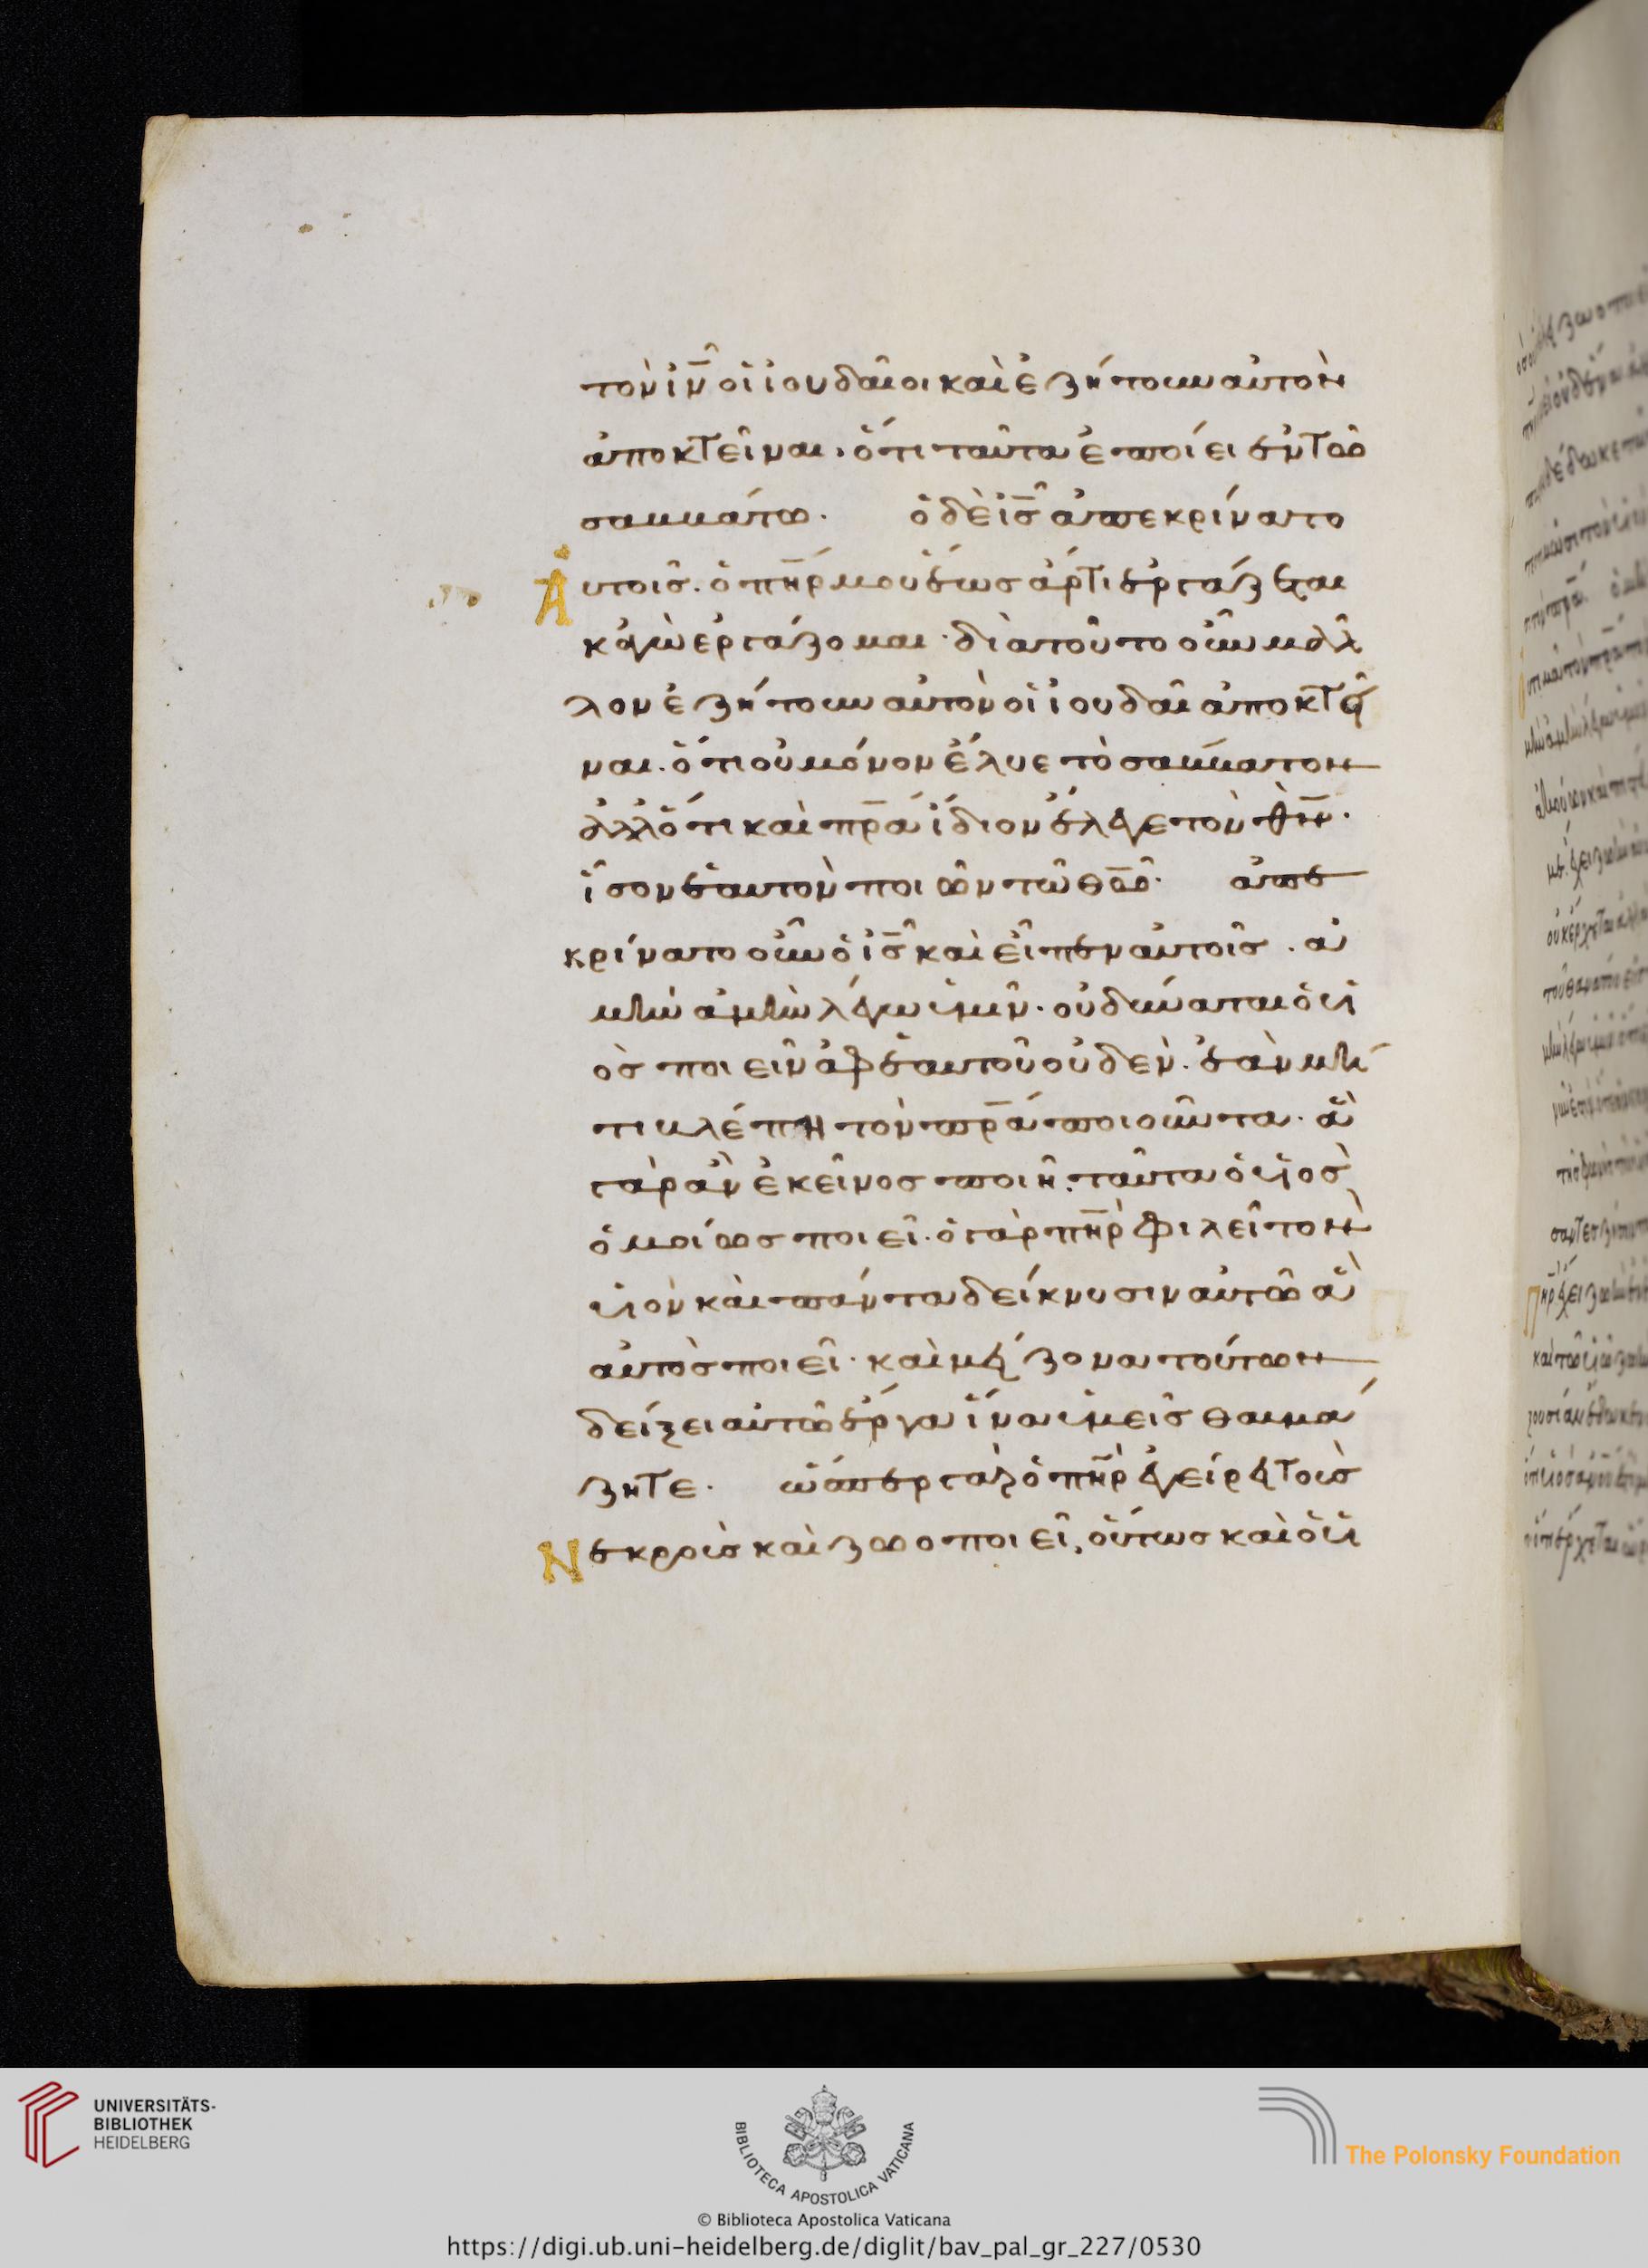 τὸν ιν οἱ ἰουδαῖοι καὶ ἐζήτουν αὐτὸν
ἀποκτεῖναι. ὅτι ταῦτα ἐποίει ἐν τῶ
σαββάτω. ὁ δὲ ισ ἀπεκρίνατο
Αὐτοῖσ. ὁ πηρ μου ἕωσ ἄρτι ἐργάζεται
κἀγὼ ἐργάζομαι. διὰ τοῦτο οὖν μαλ
λον ἐζήτουν αὐτὸν οἱ ἰουδαῖ ἀποκτεῖ
ναι. ὅτι οὐ μόνον ἔλυε τὸ σάββατον
ἀλλ ὅτι καὶ πρα ἴδιον ἔλεγε τὸν θν.
ἶσον ἑαυτὸν ποιῶν τῶ θω. ἀπε
κρίνατο οὖν ὁ ισ καὶ εἶπεν αὐτοῖσ. ἀ
μὴν ἀμὴν λέγω ὑμῖν. οὐ δύναται ὁ υἱ
ὸσ ποιεῖν ἀφ ἑαυτοῦ οὐδεν. ἐὰν μή
τι βλέπη τὸν πρα ποιοῦντα. ἃ
γὰρ ἂν ἐκεῖνοσ ποιῆ, ταῦτα ὁ υἱὸσ
ὁμοίωσ ποιεῖ. ὁ γὰρ πηρ φιλεῖ τὸν
υἱὸν καὶ πάντα δείκνυσιν αὐτῶ ἃ
αὐτὸσ ποιεῖ. καὶ μείζονα τούτων
δείξει αὐτῶ ἔργα ἵνα ὑμεῖσ θαυμά
ζητε. ὥσπερ γὰρ ὁ πηρ ἐγείρει τοὺσ
Νεκροὺσ καὶ ζωοποιεῖ, οὕτωσ καὶ ὁ υἱ
UNIVERSITÄTS-
BIBLIOTHEK
HEIDELBERG
BIBLIOTECA APOSTOLICA VATICANA
The Polonsky Foundation
© Biblioteca Apostolica Vaticana
https://digi.ub.uni-heidelberg.de/diglit/bav_pal_gr_227/0530